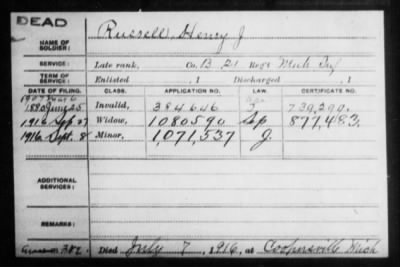 DEAD
NAME OF SOLDIER: Russell, Henry J
SERVICE: Late rank, Co. B 21 Reg't Mich Inf
TERM OF SERVICE: Enlisted , 1 Discharged , 1
DATE OF FILING. CLASS. APPLICATION NO. LAW. CERTIFICATE NO.
1907
1880 June 25 Invalid, 384.646 J 739,290.
1916 Sep 27 Widow, 1080590 Sep 877,483.
1916 Sept. 8 Minor, 1,071,537 J.
ADDITIONAL SERVICES:
REMARKS:
Died July 7, 1916, at Coopersville Mich